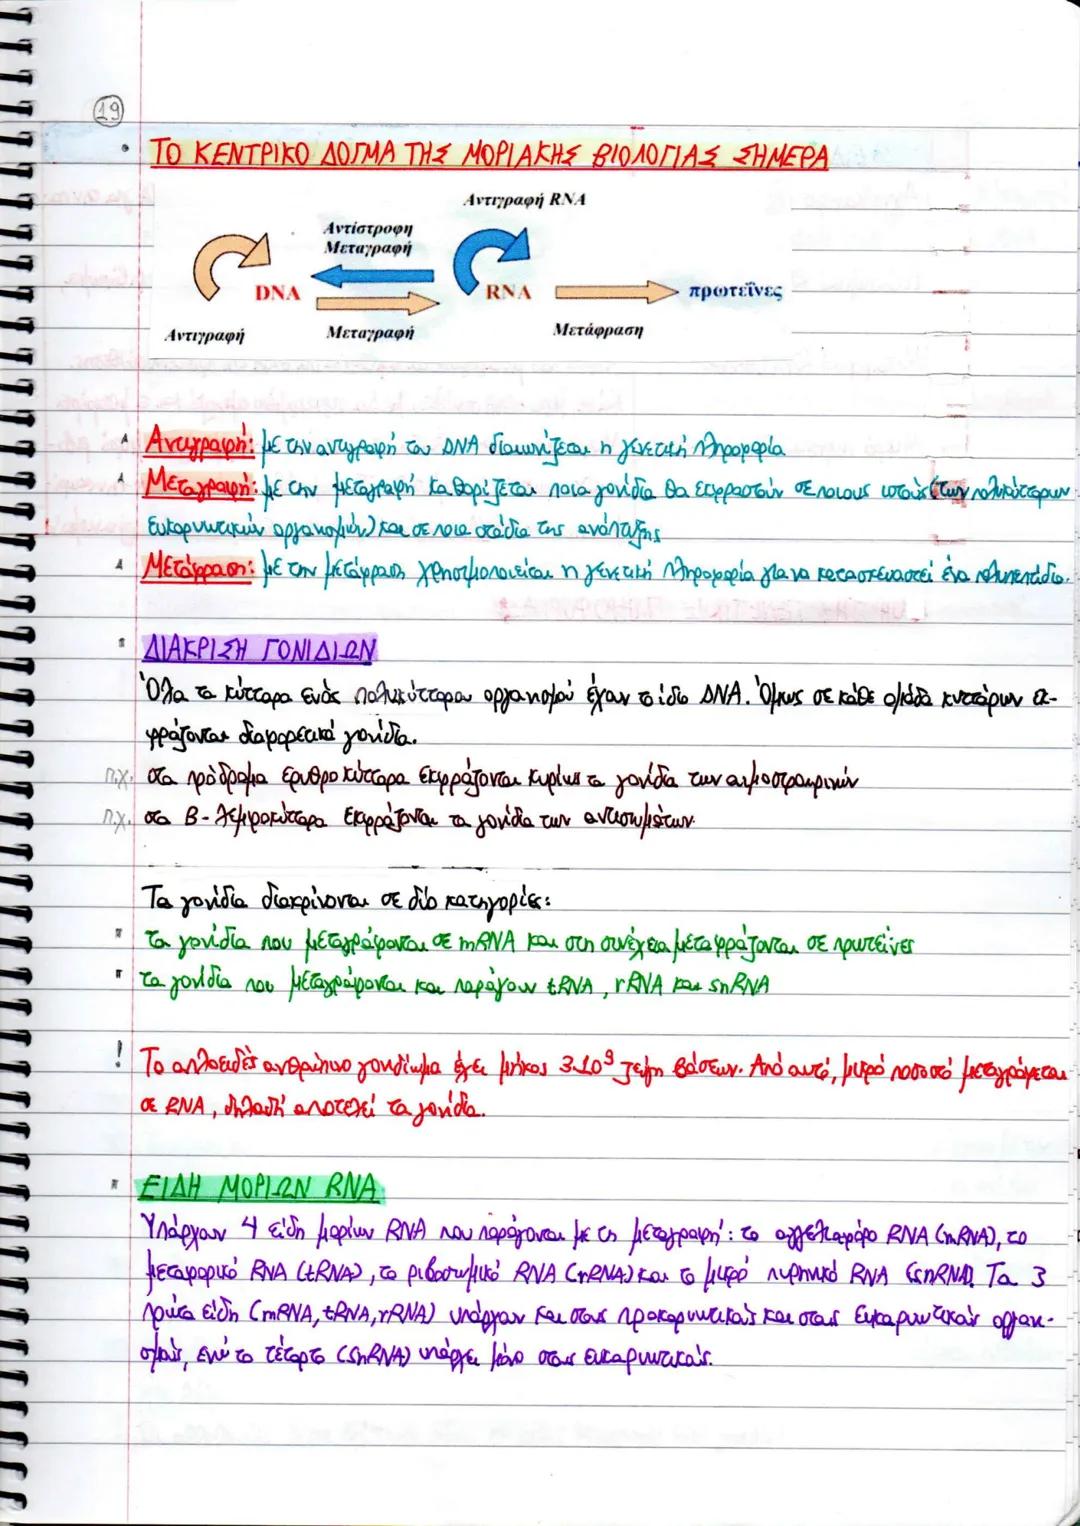 19
ΤΟ ΚΕΝΤΡΙΚΟ ΔΟΓΜΑ ΤΗΣ ΜΟΡΙΑΚΗΣ ΒΙΟΛΟΓΙΑΣ ΣΗΜΕΡΑ
Αντιγραφή RNA
Αντίστροφη
Μεταγραφή
DNA
RNA
πρωτεΐνες
Αντιγραφή
Μεταγραφή
Μετάφραση
Αντιγραφή: με την αντιγραφή του DNA διαιωνίζεται η γενετική πληροφορία
Μεταγραφή: με την μεταγραφή καθορίζεται ποια γονίδια θα εκφραστούν σε ποιους ιστούς (των πολυκύτταρων
ευκαρυωτικών οργανισμών) και σε ποια στάδια της ανάπτυξης
Μετάφραση: με την μετάφραση χρησιμοποιείται η γενετική πληροφορία για να κατασκευαστεί ένα πολυπεπτίδιο.
ΔΙΑΚΡΙΣΗ ΓΟΝΙΔΙΩΝ
Όλα τα κύτταρα ενός πολυκύτταρου οργανισμού έχουν το ίδιο DNA. Όμως σε κάθε ομάδα κυττάρων εκ-
φράζονται διαφορετικά γονίδια.
π.χ. στα πρόδρομα ερυθροκύτταρα εκφράζονται κυρίως τα γονίδια των αιμοσφαιρινών
π.χ. στα Β-λεμφοκύτταρα εκφράζονται τα γονίδια των αντισωμάτων.
Τα γονίδια διακρίνονται σε δύο κατηγορίες:
τα γονίδια που μεταγράφονται σε mRNA και στη συνέχεια μεταφράζονται σε πρωτεΐνες
τα γονίδια που μεταγράφονται και παράγουν tRNA, rRNA και snRNA
! Το απλοειδές ανθρώπινο γονιδίωμα έχει μήκος 3·10⁹ ζεύγη βάσεων. Από αυτό, μικρό ποσοστό μεταγράφεται
σε RNA, δηλαδή αποτελεί τα γονίδια.
ΕΙΔΗ ΜΟΡΙΩΝ RNA
Υπάρχουν 4 είδη μορίων RNA που παράγονται με τη μεταγραφή: το αγγελιαφόρο RNA (mRNA), το
μεταφορικό RNA (tRNA), το ριβοσωμικό RNA (rRNA) και το μικρό πυρηνικό RNA (snRNA). Τα 3
πρώτα είδη (mRNA, tRNA, rRNA) υπάρχουν και στους προκαρυωτικούς και στους ευκαρυωτικούς οργαν-
ισμούς, ενώ το τέταρτο (snRNA) υπάρχει μόνο στους ευκαρυωτικούς.